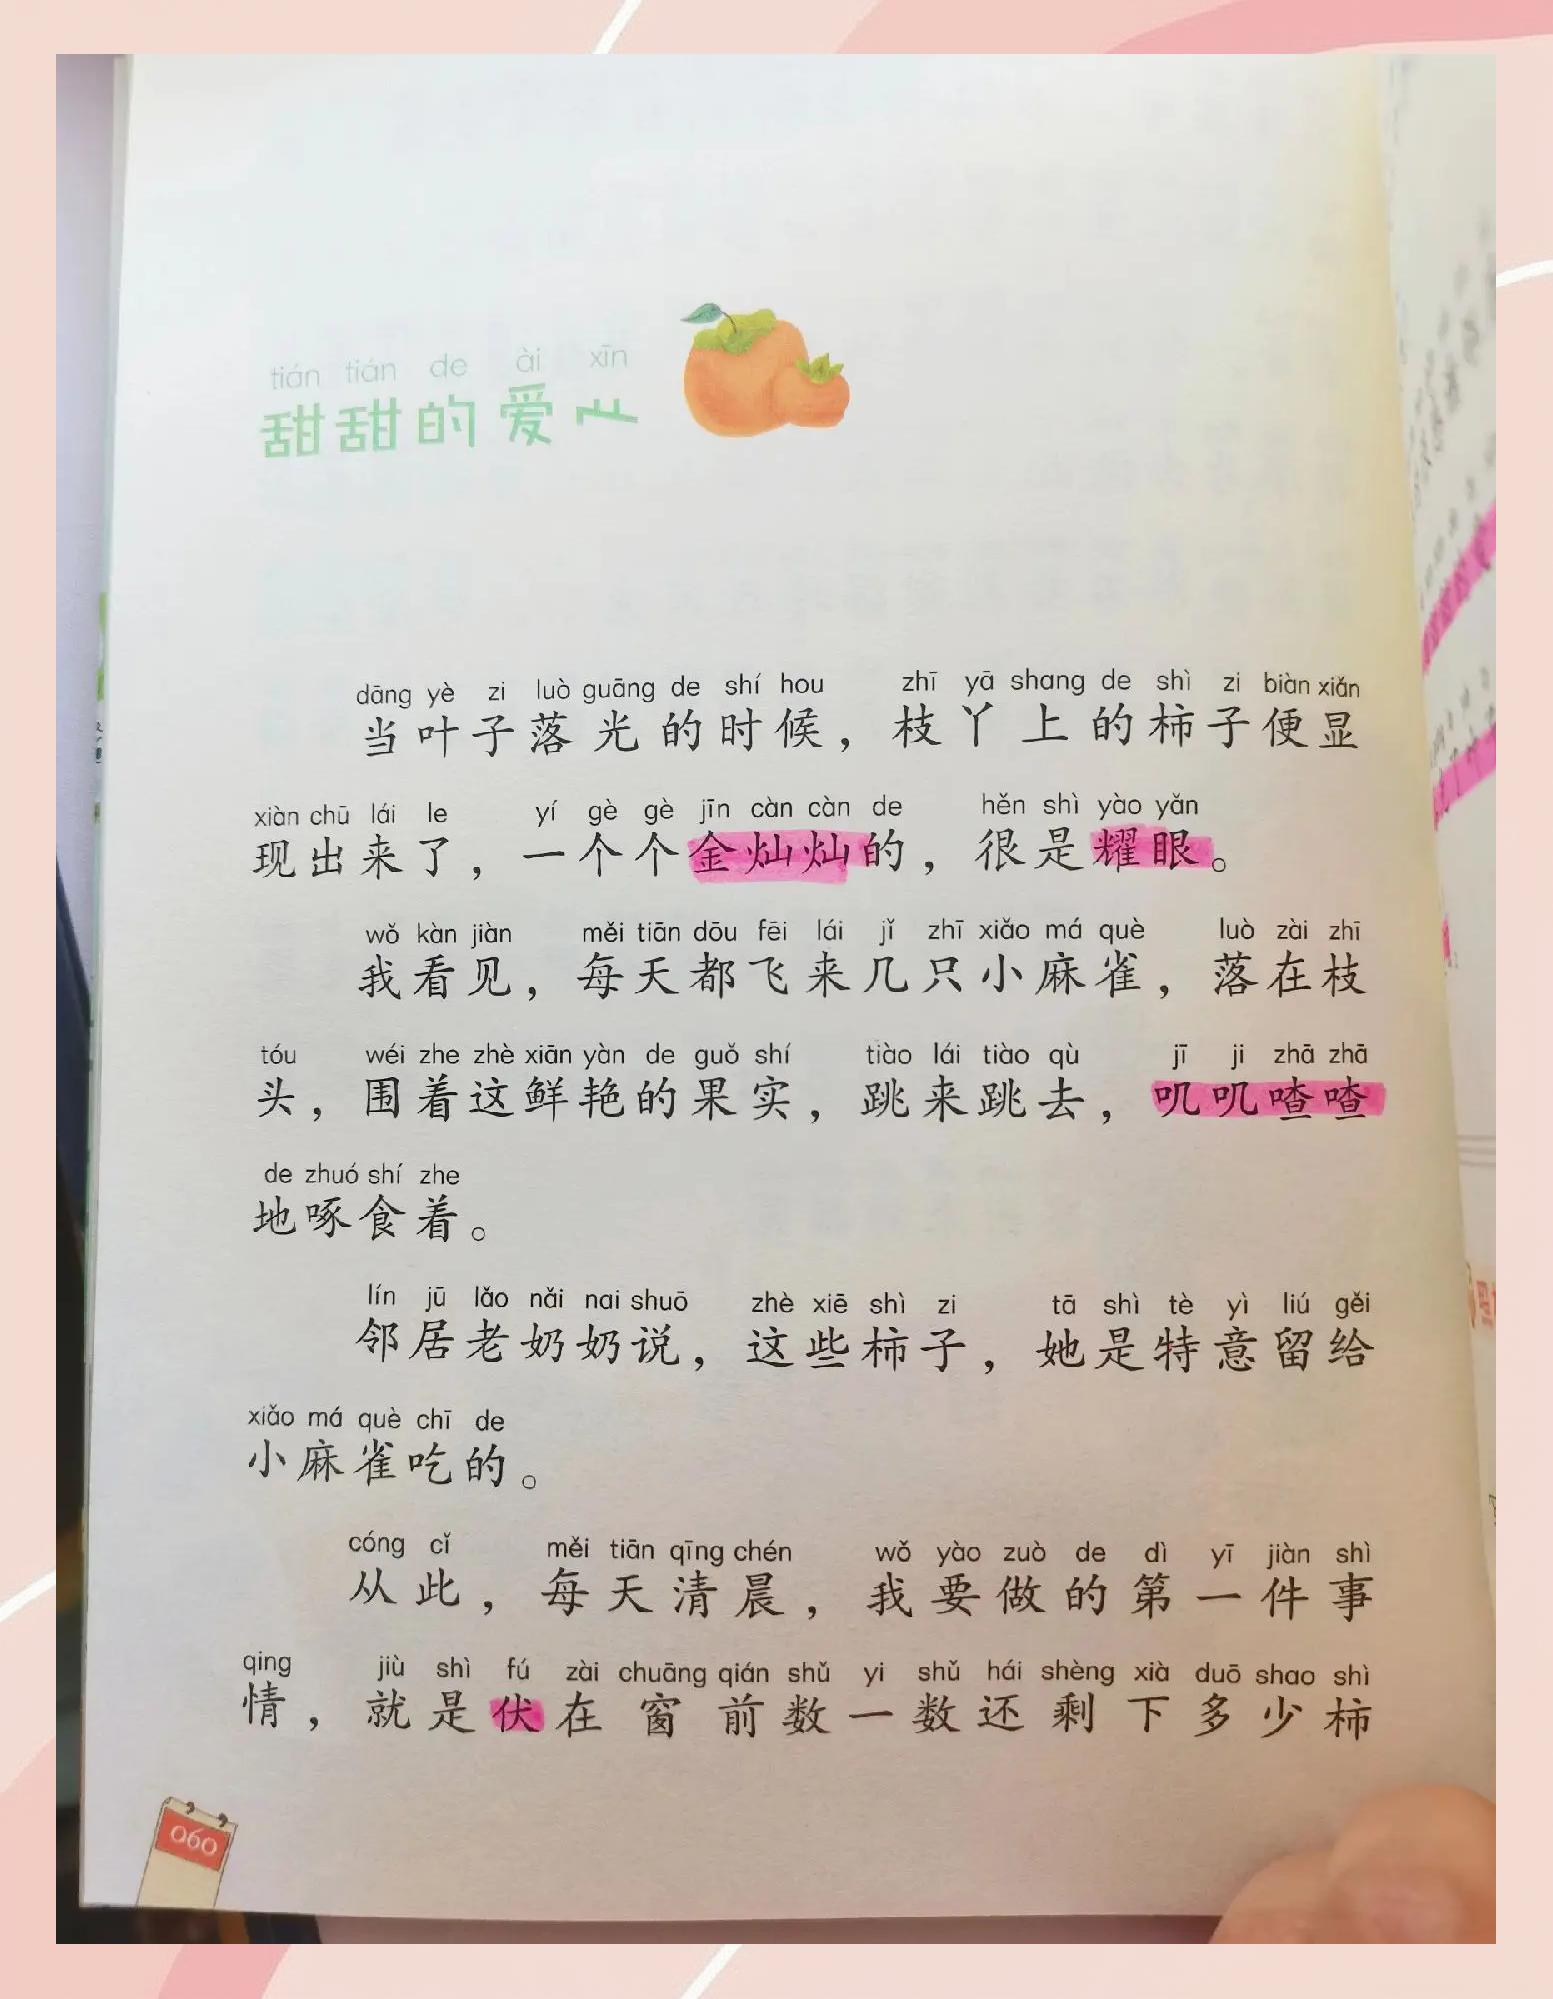 tián tián de ài xīn
甜甜的爱心
dāng yè zi luò guāng de shí hou zhī yā shang de shì zi biàn xiǎn
当叶子落光的时候，枝丫上的柿子便显
xiàn chū lái le yí gè gè jīn càn càn de hěn shì yào yǎn
现出来了，一个个金灿灿的，很是耀眼。
wǒ kàn jiàn měi tiān dōu fēi lái jǐ zhī xiǎo má què luò zài zhī
我看见，每天都飞来几只小麻雀，落在枝
tóu wéi zhe zhè xiān yàn de guǒ shí tiào lái tiào qù jī ji zhā zhā
头，围着这鲜艳的果实，跳来跳去，叽叽喳喳
de zhuó shí zhe
地啄食着。
lín jū lǎo nǎi nai shuō zhè xiē shì zi tā shì tè yì liú gěi
邻居老奶奶说，这些柿子，她是特意留给
xiǎo má què chī de
小麻雀吃的。
cóng cǐ měi tiān qīng chén wǒ yào zuò de dì yī jiàn shì
从此，每天清晨，我要做的第一件事
qing jiù shì fú zài chuāng qián shǔ yi shǔ hái shèng xià duō shao shì
情，就是伏在窗前数一数还剩下多少柿
060